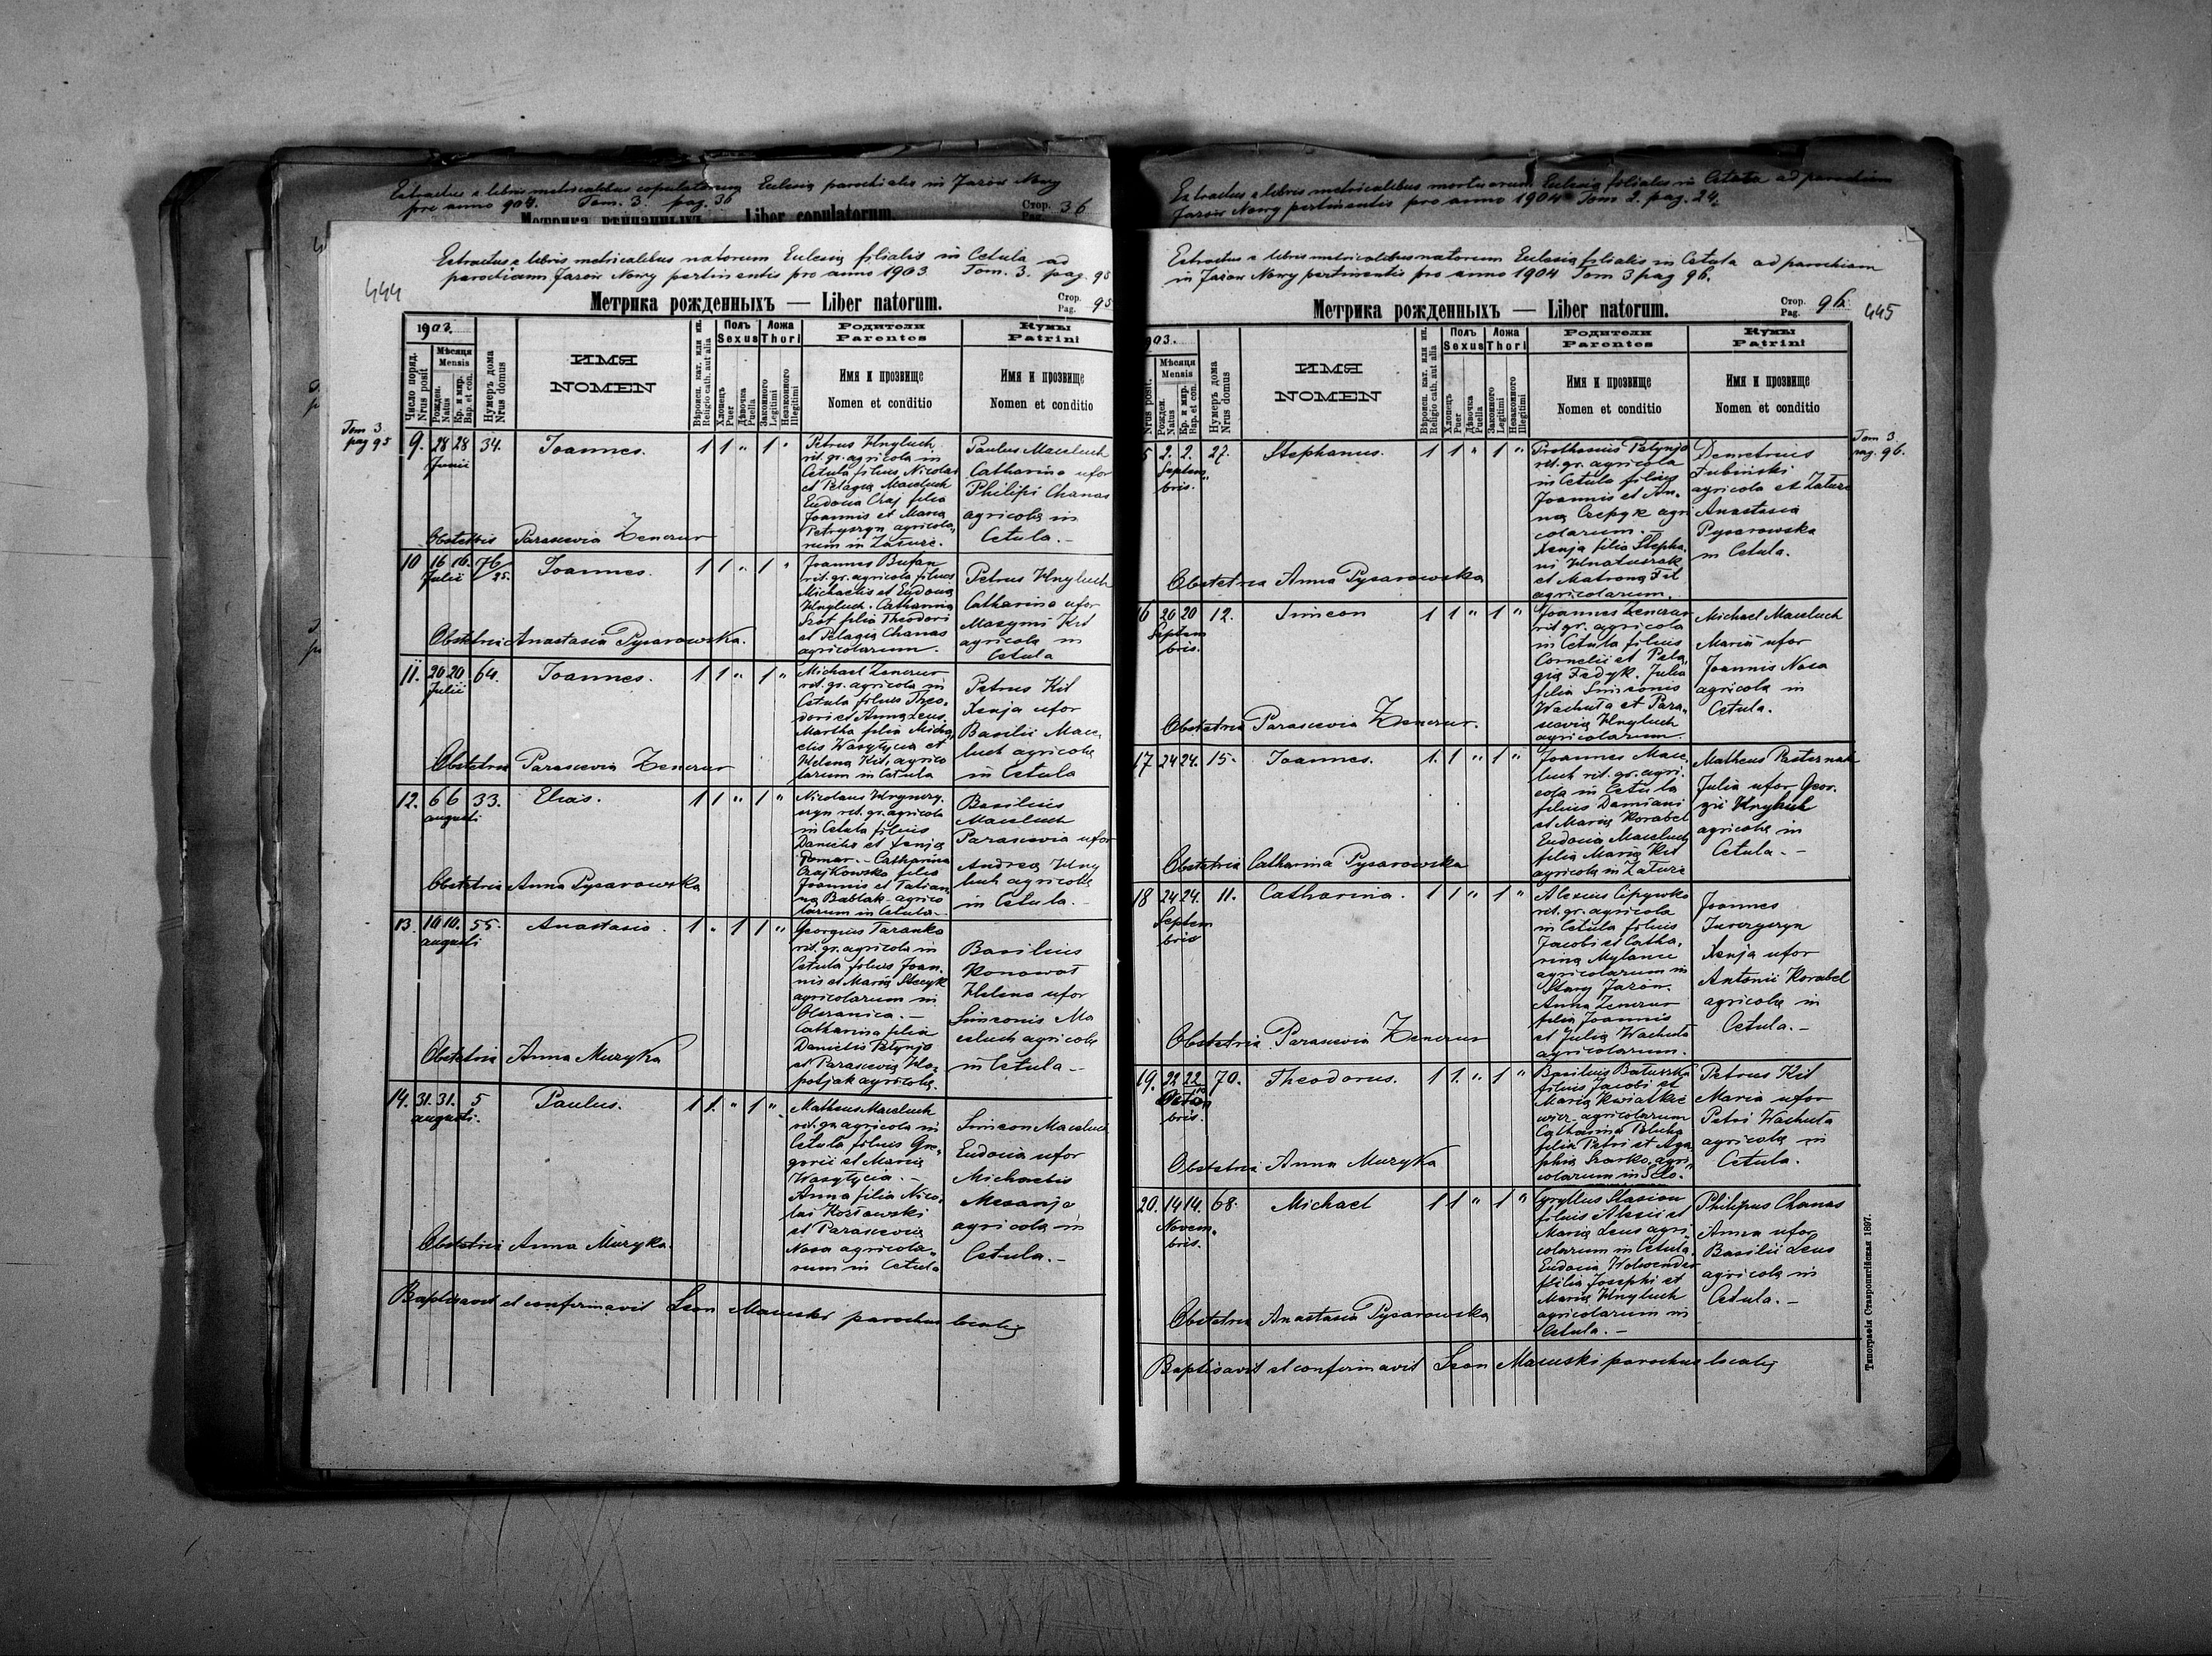 Extractus e libris metricalibus copulatorum Eclesiæ parochialis in Jazów Nowy
pro anno 904. Tom. 3. pag. 36
Метрика вѣнчанныхъ — Liber copulatorum.
Стор. Pag. 36
444
Extractus e libris metricalibus natorum Eclesiæ filialis in Cetula ad
parochiam Jazów Nowy pertinentis pro anno 1903. Tom. 3. pag. 95
Метрика рожденныхъ — Liber natorum.
Стор. Pag. 95
1903.
Число поряд. Nrus posit
Мѣсяця Mensis
Рожден. Natus
Кр. и мир. Bap. et con.
Нумеръ дома Nrus domus
ИМЯ
NOMEN
Вѣроисп. кат. или ин. Religio cath. aut alia
Полъ Sexus
Хлопецъ Puer
Дѣвочка Puella
Ложа Thori
Законного Legitimi
Незаконного Illegitimi
Родители
Parentes
Имя и прозвище
Nomen et conditio
Кумы
Patrini
Имя и прозвище
Nomen et conditio
Tom 3.
pag 95
9. 28 28 34. Joannes. 1 1 " 1 "
Junii
Petrus Hnyluch
rit. gr. agricola in
Cetula filius Nicolai
et Pelagiæ Maceluch
Eudocia Chaj filia
Joannis et Mariæ
Petryszyn agricola-
rum in Załuże.
Paulus Maceluch
Catharina uxor
Philipi Chanas
agricolæ in
Cetula.-
Obstetrix Parascevia Zenczur
10 16 16. 76/25. Joannes. 1 1 " 1 "
Julii
Joannes Bufan
rit. gr. agricola filius
Michaelis et Eudociæ
Hnyluch. Catharina
Szot filia Theodori
et Pelagiæ Chanas
agricolarum.
Petrus Hnyluch
Catharina uxor
Maxymi Kit
agricola in
Cetula
Obstetrix Anastasia Pysarowska.
11. 20 20 64. Joannes. 1 1 " 1 "
Julii
Michael Zenczur
rit. gr. agricola in
Cetula filius Theo-
dori et Annæ Leus.
Martha filia Micha-
elis Wasylycia et
Helenæ Kit, agrico
larum in Cetula
Petrus Kit
Xenja uxor
Basilii Mace-
luch agricolæ
in Cetula
Obstetrix Parascevia Zenczur
12. 6 6 33. Elias. 1 1 " 1 "
augusti
rit. gr. agricola
in Cetula filius
Danielis et Xenjæ
- Catharina
Czajkowska filia
Joannis et Tatian-
næ Bablak - agrico
larum in Cetula -
Basilius
Maceluch
Parascevia uxor
Andreæ Hny
luch agricolæ
in Cetula. -
Obstetrix Anna Pysarowska
13. 10 10. 55. Anastasia. 1 " 1 1 "
augusti
Georgius Taranko
rit. gr. agricola in
Cetula filius Joan-
nis et Mariæ Stecyk
agricolarum in
Olszanica. -
Catharina filia
Danielis Petynjo
et Parasceviæ Hlo-
potjak agricolæ.
Basilius
Konował
Helena uxor
Simeonis Ma
celuch agricolæ
in Cetula -
Obstetrix Anna Muzyka
14. 31. 31. 5 Paulus. 1 1. " 1 "
augusti.
Matheus Maceluch
rit. gr. agricola in
Cetula filius Gre-
gorii et Mariæ
Wasylycia. -
Anna filia Nico-
lai Kozłowski
et Parasceviæ
Nosa agricola-
rum in Cetula
Simeon Maceluch
Eudocia uxor
Michaelis
agricola in
Cetula.-
Obstetrix Anna Muzyka.
Baptisavit et confirmavit Leon parochus localis
Extractus e libris metricalibus mortuorum Eclesiæ filialis in Cetula ad parochiam
Jazów Nowy pertinentis pro anno 1904 Tom 2. pag. 24.
Extractus e libris metricalibus natorum Eclesiæ filialis in Cetula ad parochiam
in Jazów Nowy pertinentis pro anno 1904 Tom 3 pag 96.
Метрика рожденныхъ — Liber natorum.
Стор. Pag. 96.
445
903.
Nrus posit.
Мѣсяця Mensis
Рожден. Natus
Кр. и мир. Bap. et con.
Нумеръ дома Nrus domus
ИМЯ
NOMEN
Вѣроисп. кат. или ин. Religio cath. aut alia
Полъ Sexus
Хлопецъ Puer
Дѣвочка Puella
Ложа Thori
Законного Legitimi
Незаконного Illegitimi
Родители
Parentes
Имя и прозвище
Nomen et conditio
Кумы
Patrini
Имя и прозвище
Nomen et conditio
Tom 3.
pag. 96.
5 2. 2. 27. Stephanus. 1 1 " 1 "
Septem-
bris.
Prothasius Petynjo
rit. gr. agricola
in Cetula filius
Joannis et An-
næ Czepyk agri
colarum. -
Xenja filia Stepha-
ni Hnatuszak
et Matronæ Fil
agricolarum.
Demetrius
Dubiński
agricola et Załuże
Anastasia
Pysarowska
in Cetula.
Obstetrix Anna Pysarowska
6 20 20 12. Simeon 1 1 " 1 "
Septem
bris.
Joannes Zenczur
rit gr. agricola
in Cetula filius
Cornelii et Pela-
giæ Fedyk. Julia
filia Simeonis
Wachuta et Para-
sceviæ Hnyluch
agricolarum.
Michael Maceluch
Maria uxor
Joannis Nosa
agricola in
Cetula.
Obstetrix Parascevia Zenczur.
17 24 24. 15. Joannes. 1. 1 " 1 "
Joannes Mace-
luch rit. gr. agri-
cola in Cetula
filius Damiani
et Mariæ Korabel
Eudocia Maceluch
filia Mariæ Kit
agricolæ in Załuże
Matheus Pasternak
Julia uxor Geor-
gii Hnyluch
agricolæ in
Cetula. -
Obstetrix Catharina Pysarowska
18 24 24. 11. Catharina. 1 1 " 1 "
Septem
bris
Alexius Cipywko
rit. gr. agricola
in Cetula filius
Jacobi et Catha-
rinæ Mylanic
agricolarum in
Stary Jazów.
Anna Zenczur
filia Joannis
et Juliæ Wachuta
agricolarum.
Joannes
Xenja uxor
Antonii Korabel
agricolæ in
Cetula. -
Obstetrix Parascevia Zenczur
19. 22 22 70. Theodorus. 1 1. " 1 "
bris.
Basilius Batuszka
filius Jacobi et
Mariæ Kwiatkie
wicz. agricolarum
Catharina Peluha
filia Petri et Aga-
phiæ Szarko. agri-
colarum in Sclo.
Petrus Kit
Maria uxor
Petri Wachuta
agricolæ in
Cetula.
Obstetrix Anna Muzyka
20. 14 14. 68. Michael 1 1 " 1 "
Novem-
bris.
Cyryllus Stasiow
filius Alexii et
Mariæ Leus agri-
colarum in Cetula.
Eudocia
filia Josephi et
Mariæ Hnyluch
agricolarum in
Cetula. -
Philipus Chanas
Anna uxor
Basilii Leus
agricolæ in
Cetula. -
Obstetrix Anastasia Pysarowska
Baptisavit et confirmavit Leon parochus localis
Типографія Ставропигійская 1897.